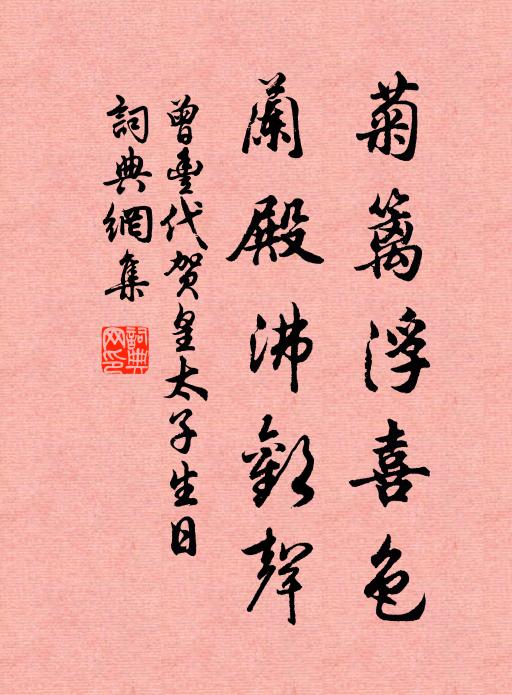 菊籬浮喜色
蘭殿沸歡聲
曾豐代賀皇太子生日
詞典網集
詞典網印